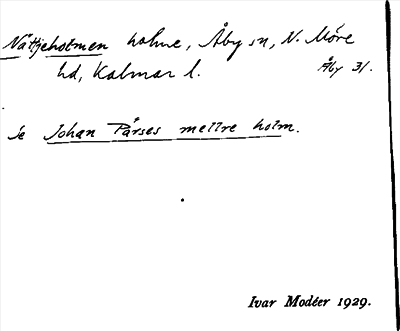 Nättjeholmen holme, Åby sn, N. Möre
hd, Kalmar l. Åby 31.
se Johan Pärses mellre holm.
Ivar Modéer 1929.